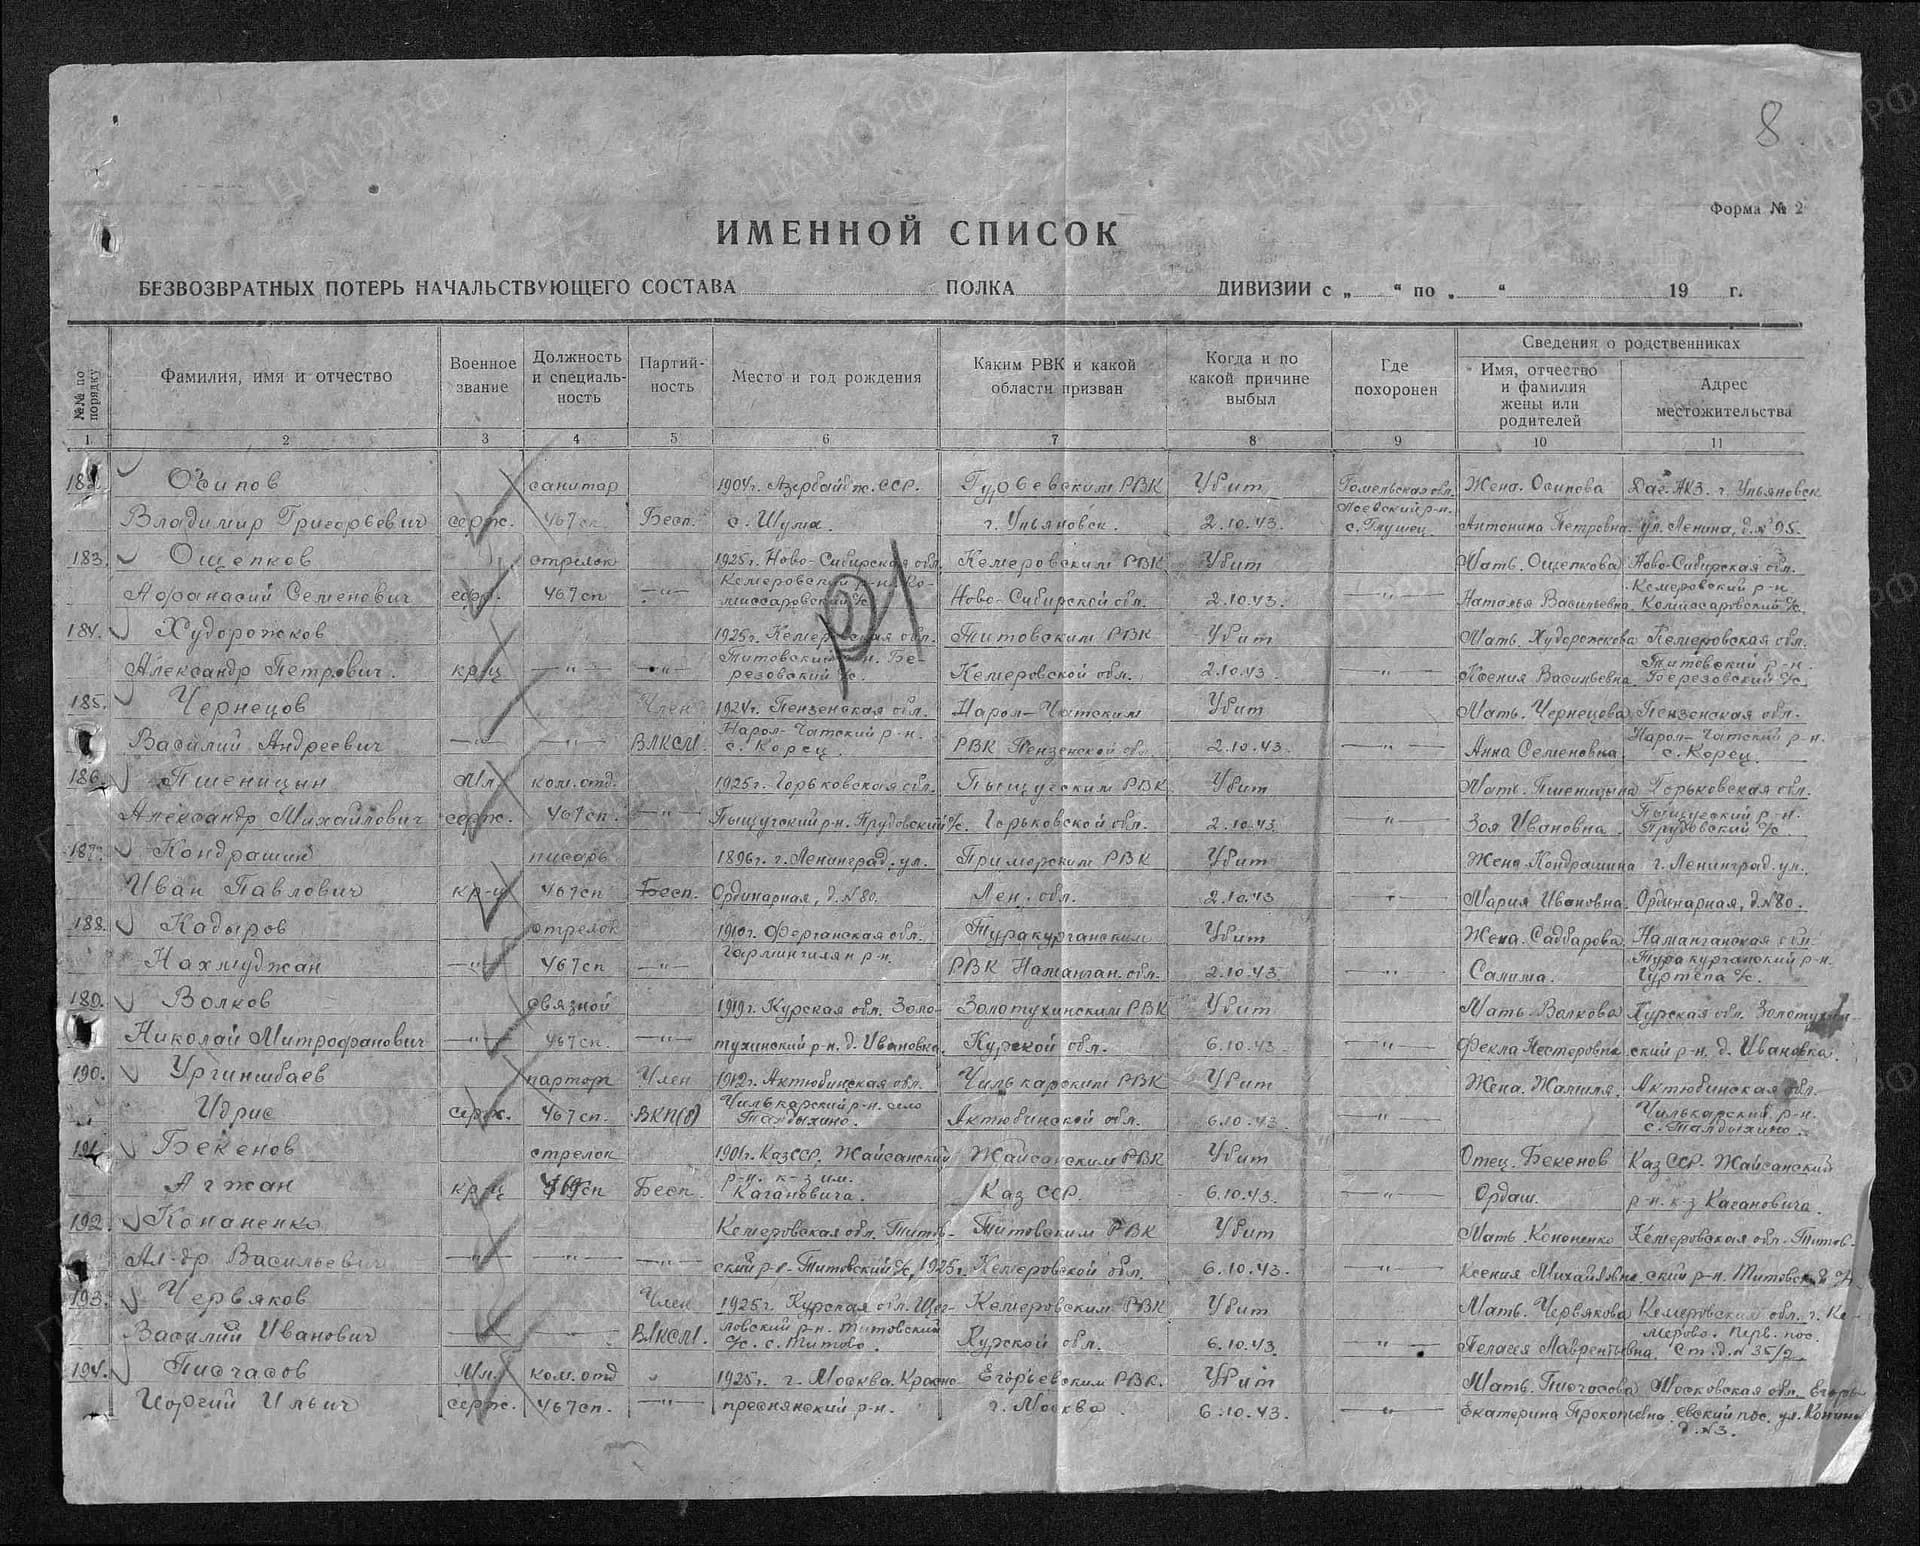 8
Форма № 2
ИМЕННОЙ СПИСОК
БЕЗВОЗВРАТНЫХ ПОТЕРЬ НАЧАЛЬСТВУЮЩЕГО СОСТАВА ПОЛКА ДИВИЗИИ с „ “ по „ “ 19 г.
№№ по порядку
Фамилия, имя и отчество
Военное звание
Должность и специаль-ность
Партий-ность
Место и год рождения
Каким РВК и какой области призван
Когда и по какой причине выбыл
Где похоронен
Сведения о родственниках
Имя, отчество и фамилия жены или родителей
Адрес местожительства
1 2 3 4 5 6 7 8 9 10 11
Осипов санитар 1904г. Азербайдж. ССР. РВК Убит Гомельская обл. Жена. Осипова г. Ульяновск
Владимир Григорьевич серж. 467 сп Бесп. с. Шума. г. Ульяновск. 2.10.43. Лоевский р-н. с. Глушец. Антонина Петровна. ул. Ленина, д. №95.
183. Ощепков стрелок 1925г. Ново-Сибирская обл. Кемеровским РВК Убит Мать. Ощепкова Ново-Сибирская обл.
Афанасий Семенович ефр. 467 сп —"— Кемеровский р-н. Ко-миссаровский с/с. Ново-Сибирской обл. 2.10.43. —"— Наталья Васильевна Кемеровский р-н Комиссаровский с/с.
184. Худорожков 1925г. Кемеровская обл. Титовским РВК Убит Мать. Худорожкова Кемеровская обл.
Александр Петрович. кр-ц —"— —"— Титовский р-н. Бе-резовский с/с. Кемеровской обл. 2.10.43. —"— Ксения Васильевна Титовский р-н. Березовский с/с.
185. Чернецов Член 1924г. Пензенская обл. Нарол-Чатским Убит Мать. Чернецова Пензенская обл.
Василий Андреевич —"— —"— ВЛКСМ. Нарол-Чатский р-н. с. Корец. РВК Пензенской обл 2.10.43. —"— Анна Семеновна Нарол-Чатский р-н. с. Корец.
186. Пшеницын Мл. ком.отд. 1925г. Горьковская обл. Пыщугским РВК Убит Мать. Пшеницына Горьковская обл.
Александр Михайлович серж. 467 сп. —"— Пыщугский р-н. Прудовский с/с. Горьковской обл. 2.10.43 " Зоя Ивановна Пыщугский р-н. Прудовский с/с
187. Кондрашин писарь 1896г. г. Ленинград. ул. Приморским РВК Убит Жена. Кондрашина г. Ленинград. ул.
Иван Павлович кр-ц 467 сп Бесп. Ординарная, д. №80. Лен. обл. 2.10.43 —"— Мария Ивановна Ординарная, д. №80.
188. Кадыров стрелок 1910г. Ферганская обл. Туракурганским Убит Жена. Саддарова Наманганская обл.
Нахмуджан —"— 467 сп —"— РВК Наманган. обл. 2.10.43 —"— Салима. Туракурганский р-н. Гуртепа с/с.
180. Волков связной 1919г. Курская обл. Золо- Золотухинским РВК Убит Мать. Волкова Курская обл.
Николай Митрофанович —"— 467 сп. —"— тухинский р-н. д. Ивановка. Курской обл. 6.10.43 —"— Фекла Нестеровна ский р-н. д. Ивановка.
190. Ургиншбаев парторг Член 1912г. Актюбинская обл. Чилькарским РВК Убит Жена. Жамиля. Актюбинская обл.
Идрис серж. 467 сп. ВКП(б) Чилькарский р-н. село Талдыхино. Актюбинской обл. 6.10.43. —"— Чилькарский р-н. с. Талдыхино.
191. Бекенов стрелок 1901г. КазССР. Жайсанский Жайсанским РВК Убит Отец. Бекенов КазССР. Жайсанский
Агжан кр-ц 467 сп Бесп. р-н. к-з им. Кагановича. Каз ССР. 6.10.43. —"— Ордаш. р-н. к-з Кагановича.
192. Кононенко Кемеровская обл. Титов- Титовским РВК Убит Мать Кононенко Кемеровская обл. Титов-
Ал-др Васильевич —"— —"— —"— ский р-н. Титовский с/с, 1925г. Кемеровской обл. 6.10.43. —"— Ксения Михайловна ский р-н. Титовский с/с
193. Червяков Член 1925г. Курская обл. Кемеровским РВК Убит Мать. Червякова Кемеровским обл. г. Ке-
Василий Иванович —"— —"— ВЛКСМ. ловский р-н. Титовский с/с. с. Титово. Курской обл. 6.10.43. " Пелагея Лаврентьевна. мерово. Перв. пос. Ст. д. №35/2
194. Писчасов Мл. ком. отд " 1925г. г. Москва. Красно- Егорьевским РВК. Убит Мать. Писчасова Московская обл. Егорь-
серж. 467 сп. —"— преснянский р-н. г. Москва 6.10.43. —"— Екатерина Прокопьевна. евский пос. ул.
д. №3.
ЦАМО.РФ